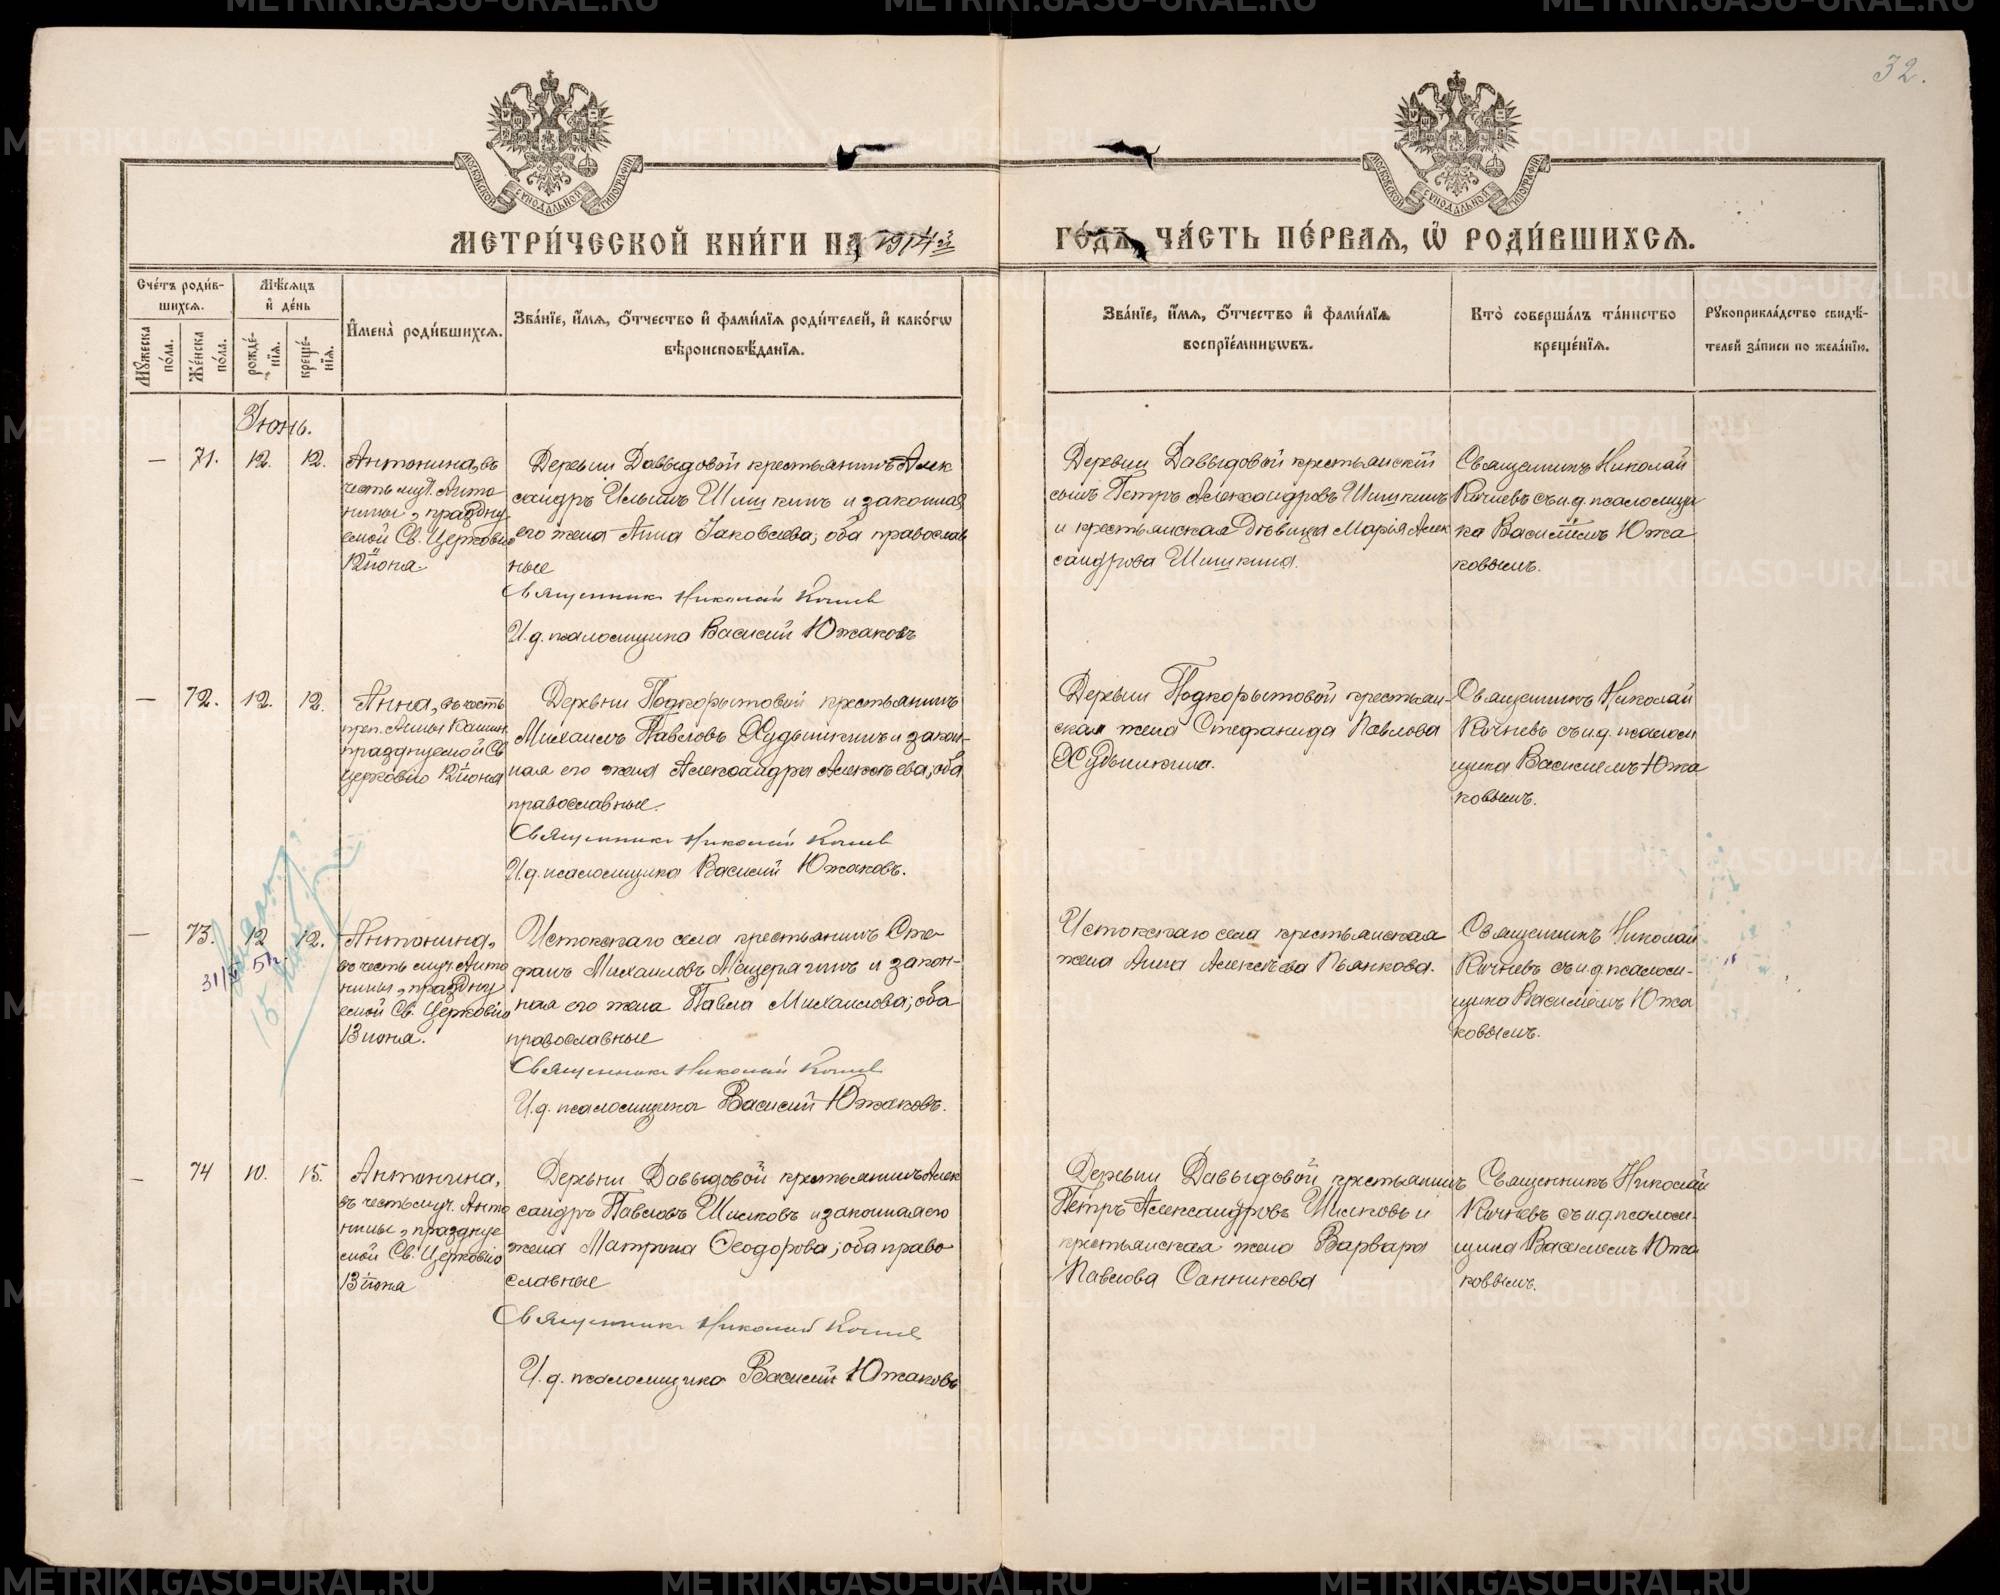 32.
МОСКОВСКОЙ СѴНОДАЛЬНОЙ ТИПОГРАФИИ
МОСКОВСКОЙ СѴНОДАЛЬНОЙ ТИПОГРАФИИ
МЕТРИ́ЧЕСКОЙ КНИ́ГИ НА 1914й
ГО́ДЪ, ЧА́СТЬ ПЕ́РВАЯ, Ѡ РОДИ́ВШИХСЯ.
Сче́тъ роди́в-
шихся.
Мꙋ́жеска по́ла.
Же́нска по́ла.
Мѣ́сяцъ
и҆ де́нь
рожде́-
нїя.
креще́-
нїя.
И҆мена̀ роди́вшихся.
Зва́нїе, и҆́мя, ѻ҆́тчество и҆ фами́лїя роди́телей, и҆ како́гѡ
вѣроисповѣ́данїя.
Зва́нїе, и҆́мя, ѻ҆́тчество и҆ фами́лїя
воспрїе́мникѡвъ.
Кто̀ соверша́лъ та́инство
креще́нїя.
Рꙋкоприкла́дство свидѣ́-
телей за́писи по жела́нїю.
Іюнь.
— 71. 12. 12.
Антонина, въ
честь муч. Анто
нины, праздну
емой Св. Церковію
12 іюня.
Деревни Давыдовой крестьянинъ Алек
сандръ Ильинъ Шишкинъ и законная
его жена Анна Іаковлева; оба православ
ные
Священникъ Николай Кочнев
И.д. псаломщика Василій Южаковъ
Деревни Давыдовой крестьянскій
сынъ Петръ Александровъ Шишкинъ
и крестьянская дѣвица Марія Алек
сандрова Шишкина.
Священникъ Николай
Кочневъ съ и.д. псаломщи
ка Василіемъ Южа
ковымъ.
— 72. 12. 12.
Анна, въ честь
преп. Анны Кашин.
празднуемой Св.
Церковію 12 іюня
Деревни Подкорытовой крестьянинъ
Михаилъ Павловъ Худышкинъ и закон-
ная его жена Александра Алексѣева; оба
православные.
Священникъ Николай Кочнев
И.д. псаломщика Василій Южаковъ.
Деревни Подкорытовой крестьян-
ская жена Стефанида Павлова
Худышкина.
Священникъ Николай
Кочневъ съ и.д. псалом
щика Василіемъ Южа
ковымъ.
— 73. 12 12.
Антонина,
въ честь муч. Анто
нины, праздну
емой Св. Церковію
13 іюня.
Истокскаго села крестьянинъ Сте-
фанъ Михаиловъ Мещерягинъ и закон-
ная его жена Павла Михаилова; оба
православные
Священникъ Николай Кочнев
И.д. псаломщика Василій Южаковъ.
Истокскаго села крестьянская
жена Анна Алексѣева Пьянкова.
Священникъ Николай
Кочневъ съ и.д. псалом-
щика Василіемъ Южа
ковымъ.
— 74 10. 15.
Антонина,
въ честь муч. Анто
нины, праздуе
мой Св. Церковію
13 іюня
Деревни Давыдовой крестьянинъ Алек
сандръ Павловъ Шилковъ и законная его
жена Матрона Ѳеодорова; оба право
славные
Священникъ Николай Кочнев
И.д. псаломщика Василій Южаковъ
Деревни Давыдовой крестьянинъ
Петръ Александровъ Шилковъ и
крестьянская жена Варвара
Павлова Санникова
Священникъ Николай
Кочневъ съ и.д. псалом-
щика Василіемъ Южа
ковымъ.
METRIKI.GASO-URAL.RU